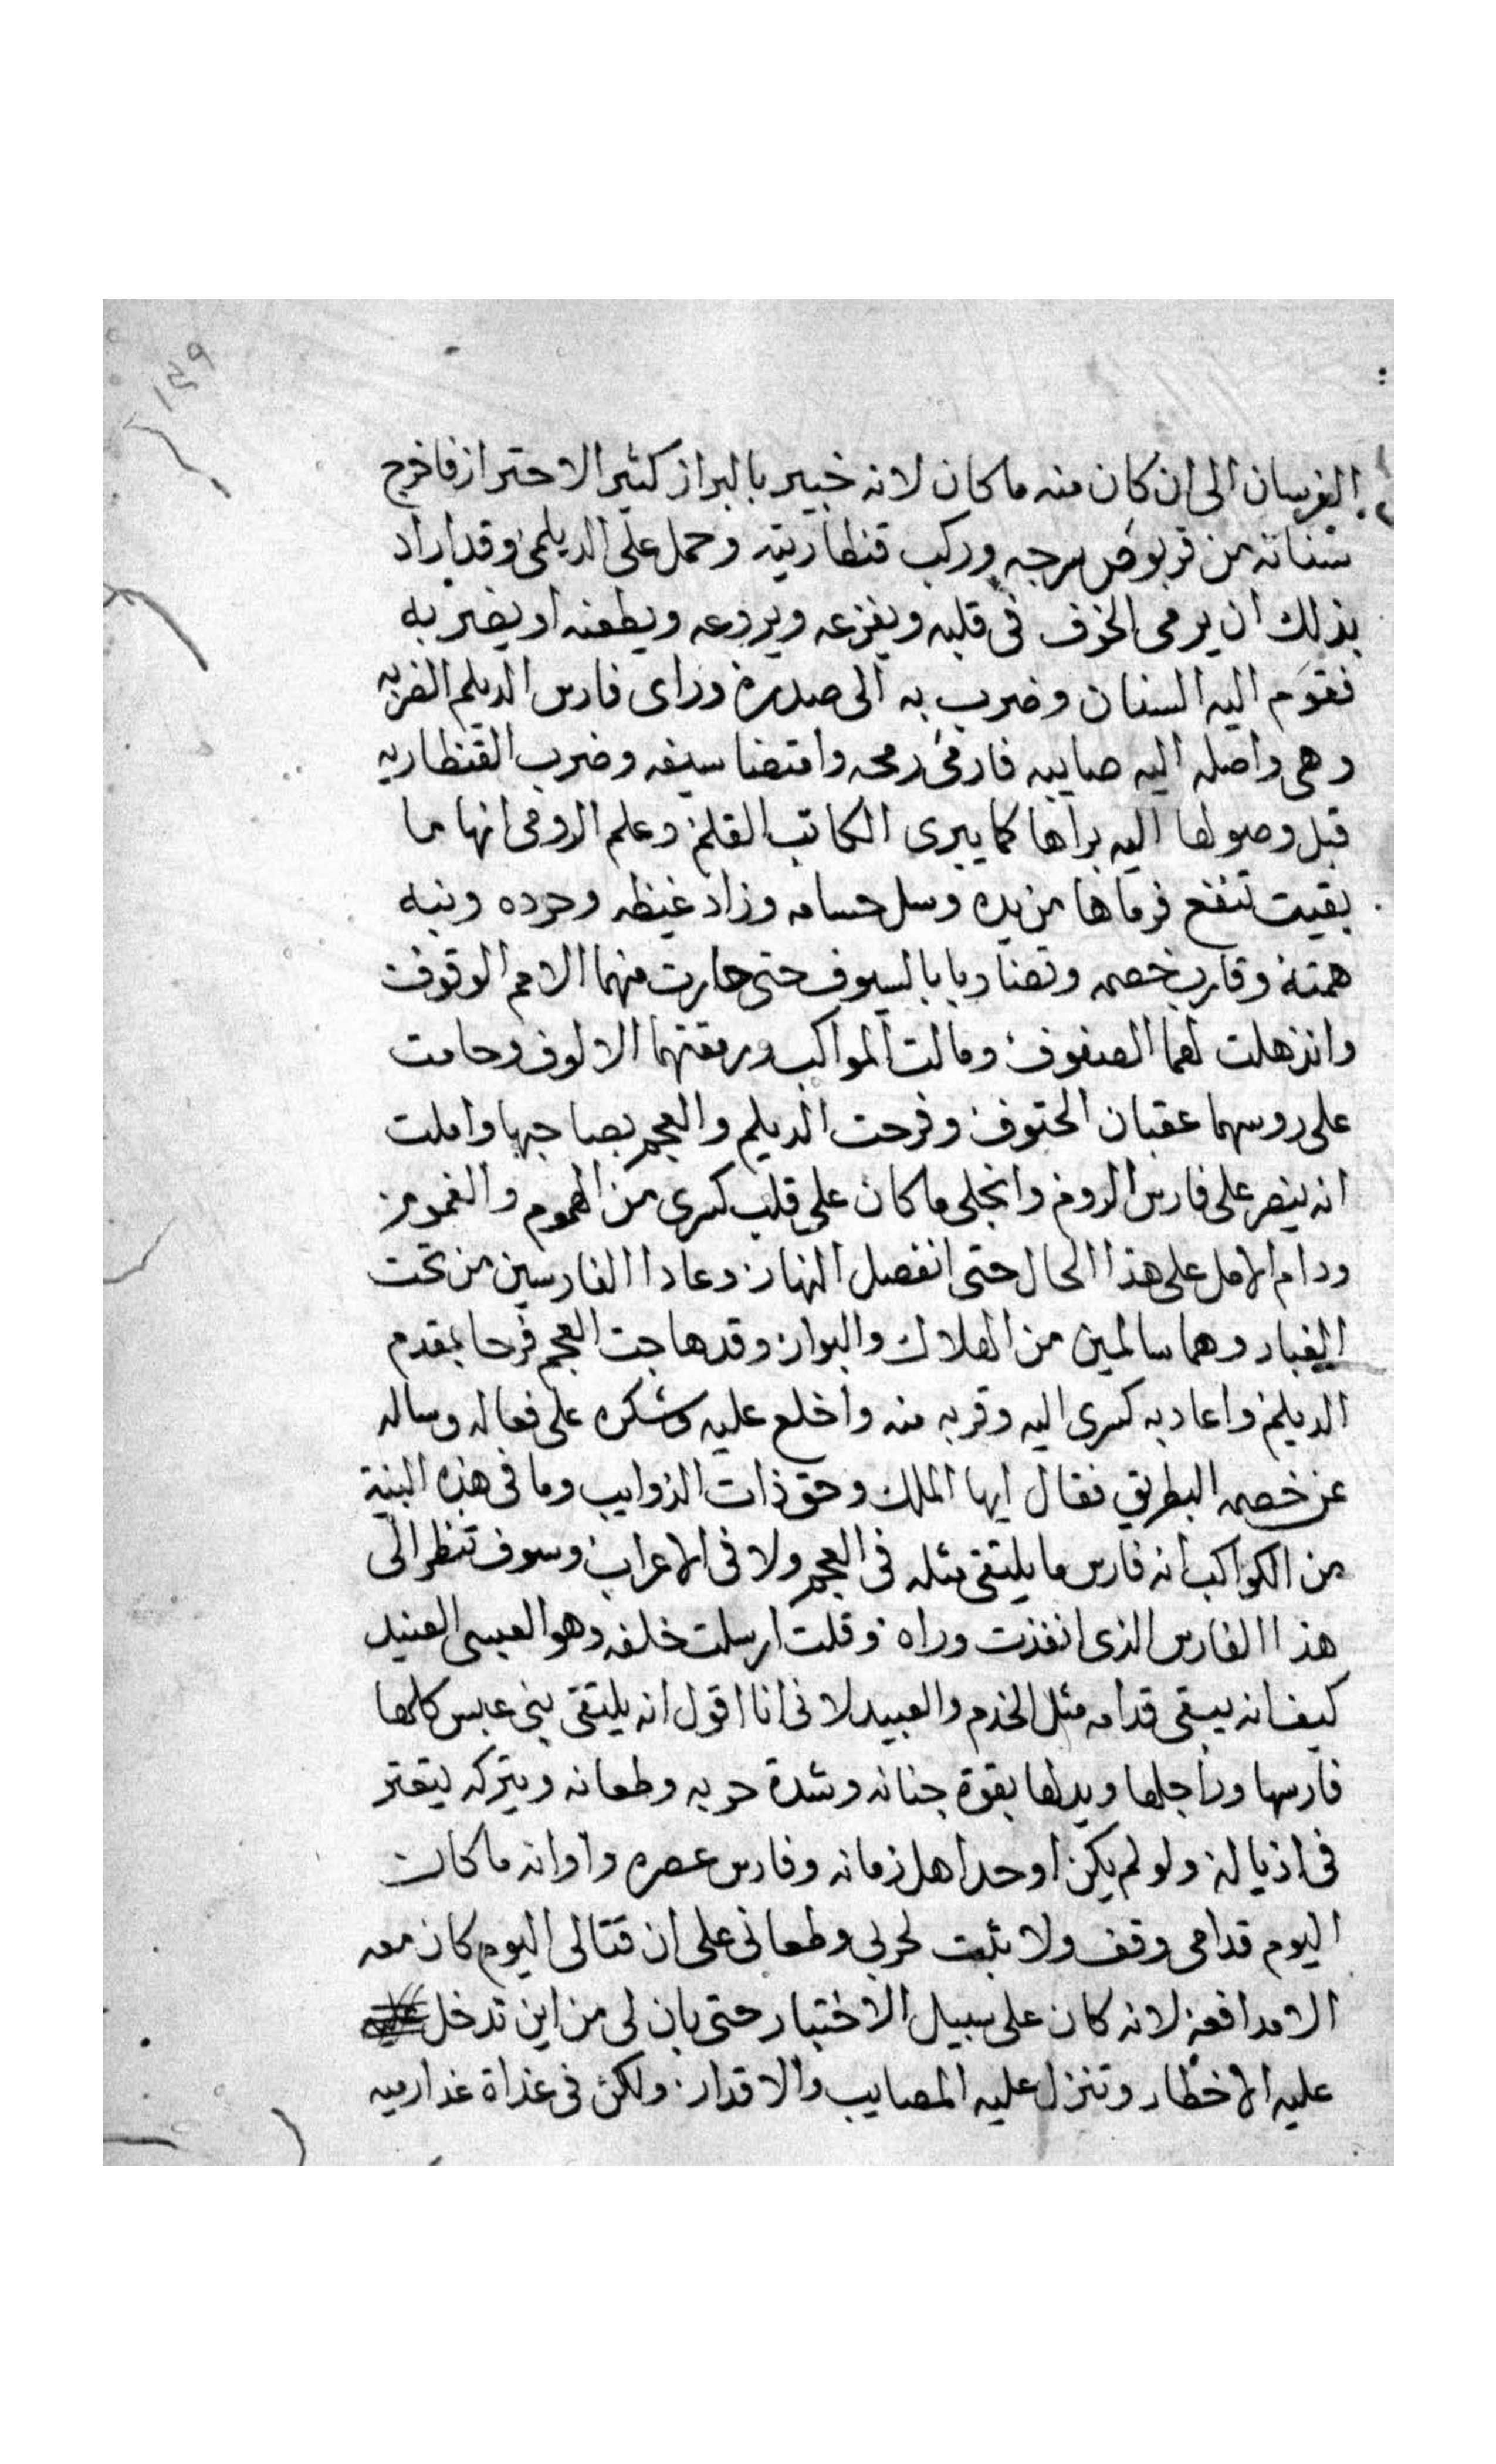 ١٤٩
الفرسان الى ان كان منه ما كان لانه خبير بالبراز كثير الاحتراز فاخرج
سنانه من قربوص سرجه وركب قنطاريته وحمل على الديلمى وقد اراد
بذلك ان يرمى الخوف فى قلبه ويفزعه ويروعه ويطعنه او يضربه
فقوم اليه السنان وضرب به الى صدره وراى فارس الديلم الضربه
وهى واصله اليه صايبه فارمى رمحه وامتضا سيفه وضرب القنطاريه
قبل وصولها اليه براها كما يبرى الكاتب القلم وعلم الرومى انها ما
بقيت تنفع فرماها من يده وسل حسامه وزاد غيظه وحرده ونبه
همته وقارب خصمه وتضاربا بالسيوف حتى حارت منهما الامم الوقوف
وانذهلت لهما الصفوف ومالت المواكب ورمقتهما الالوف وحامت
على روسهما عقبان الحتوف وفرحت الديلم والعجم بصاحبها واملت
انه ينصر على فارس الروم وانجلى ما كان على قلب كسرى من الهموم والغموم
ودام الامل على هذا الحال حتى انفصل النهار وعادا الفارسين من تحت
الغبار وهما سالمين من الهلاك والبوار وقد هاجت العجم فرحا بمقدم
الديلم واعاد به كسرى اليه وقربه منه واخلع عليه وشكره على فعاله وساله
عن خصمه البطريق فقال ايها الملك وحق ذات الذوايب وما فى هذه البنية
من الكواكب انه فارس ما يلتقى مثله فى العجم ولا فى الاعراب وسوف تنظر الى
هذا الفارس الذى انفذت وراه وقلت ارسلت خلفه وهو العبسى العنيد
كيف انه يبقى قدامه مثل الخدم والعبيد لانى انا اقول انه يلتقى بنى عبس كلها
فارسها وراجلها ويذلها بقوة جنانه وشدة حربه وطعانه ويتركه يتعثر
فى اذياله ولو لم يكن اوحد اهل زمانه وفارس عصره واوانه ما كان
اليوم قدامى وقف ولا ثبت لحربى وطعانى على ان قتالى اليوم كان معه
الا مدافعه لانه كان على سبيل الاختبار حتى بان لى من اين تدخل
عليه الاخطار وتنزل عليه المصايب والاقدار ولكن فى غداة غد ارميه